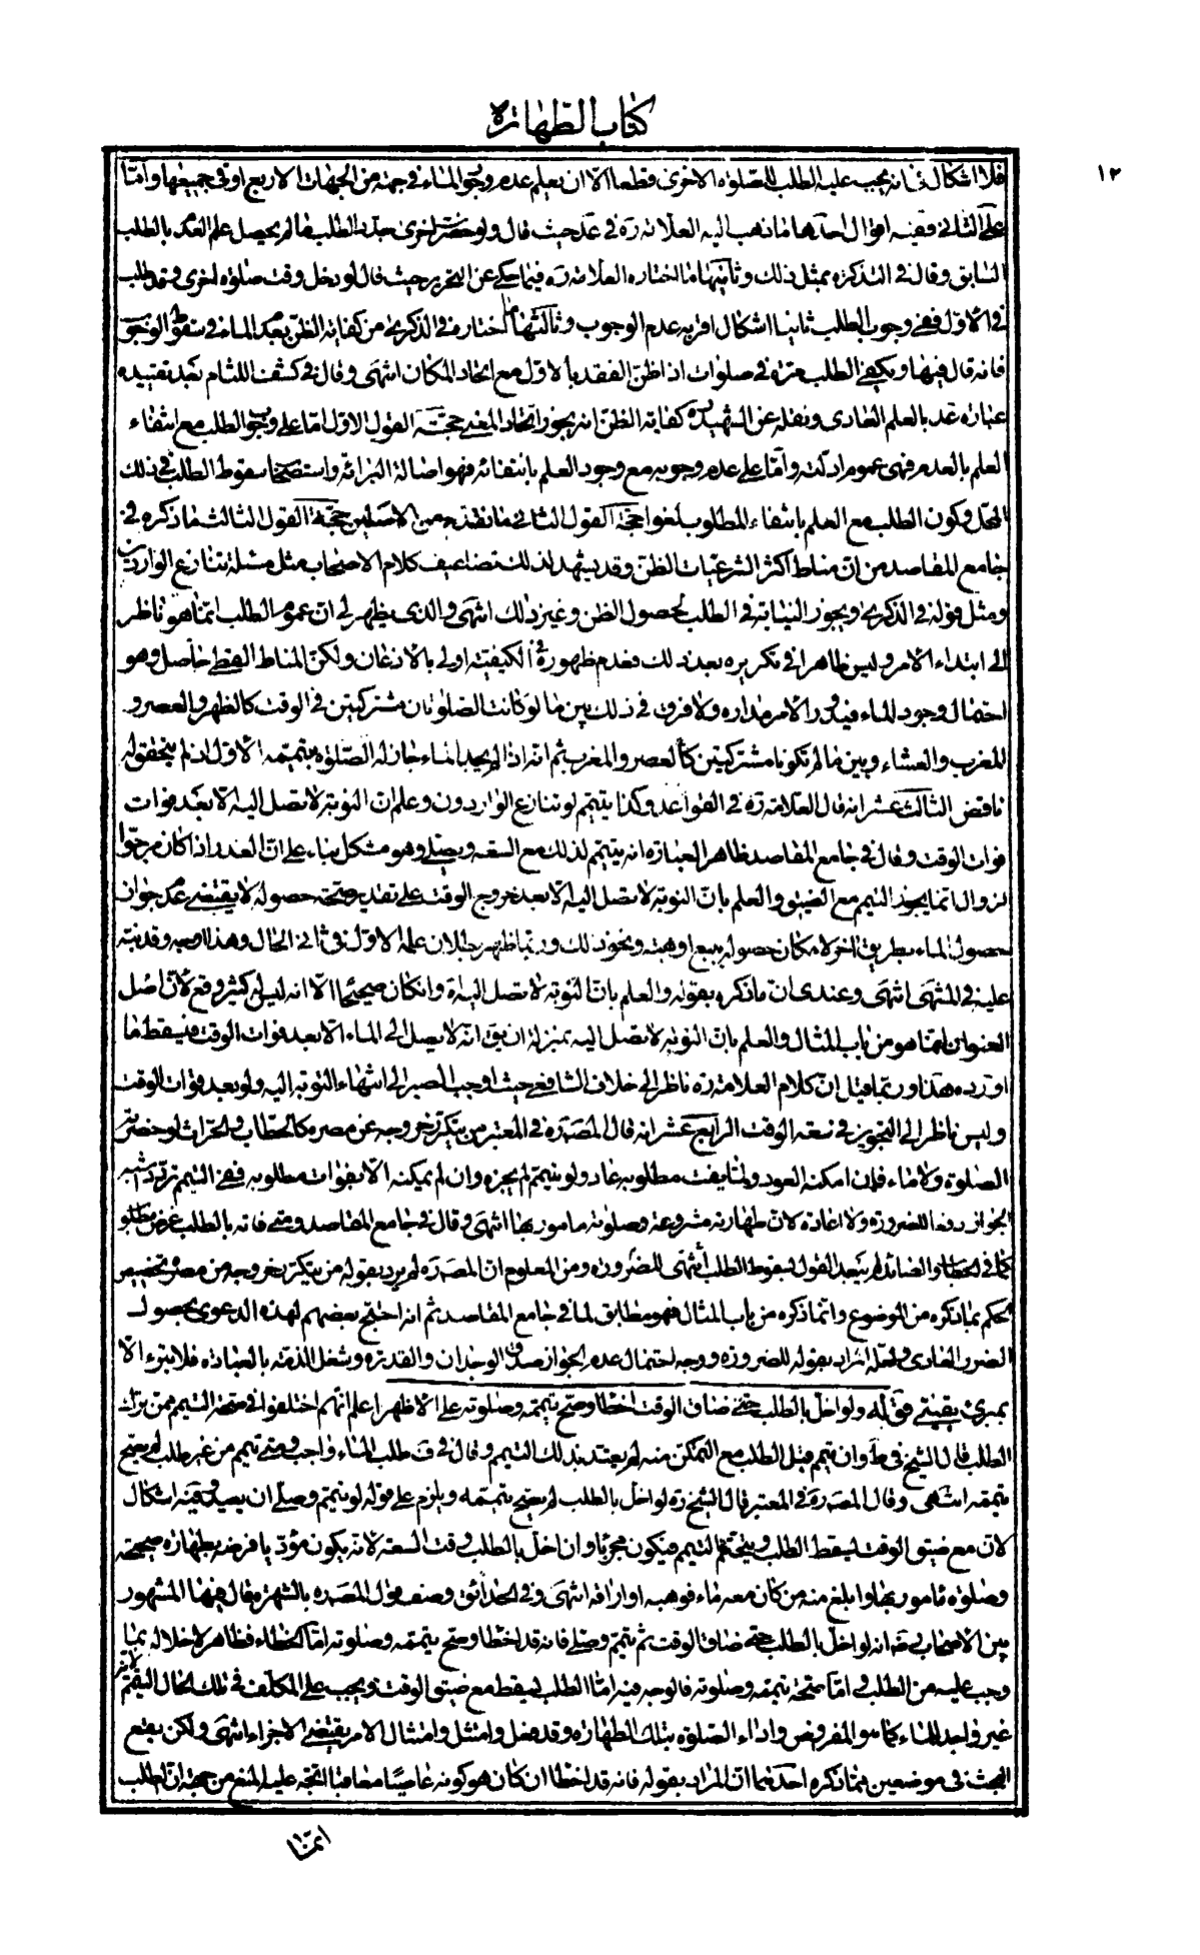 ١٢
كتاب الطهارة
فلا اشكال فى انه يجب عليه الطلب للصلوة الاخرى قطعا الا ان يعلم عدم وجود الماء فى جهة من الجهات الاربع او فى جميعها وامّا
على الثانى ففيه اقوال احدها ما ذهب اليه العلامة ره فى عد حيث قال ولو حضرت اخرى جدد الطلب ما لم يحصل علم العدم بالطلب
السابق وقال فى التذكرة بمثل ذلك وثانيها ما اختاره العلامة ره فيما حكى عن التحرير حيث قال لو دخل وقت صلوة اخرى وقد طلب
فى الاول ففى وجوب الطلب ثانيا اشكال اقربه عدم الوجوب وثالثها ما اختاره فى الذكرى من كفاية الظن بعدم الماء فى سقوط الوجوب
فانه قال فيها ويكفى الطلب مرة فى صلوات اذا ظن الفقد بالاول مع اتحاد المكان انتهى وقال فى كشف اللثام بعد تقييده
عبارة عد بالعلم العادى ونقله عن الشهيد ره كفاية الظن انه يجوز اتحاد المعنى حجة القول الاول امّا على وجوب الطلب مع انتفاء
العلم بالعدم فهى عموم ادلته وامّا على عدم وجوبه مع وجود العلم بانتفائه فهو اصالة البرائة واستصحاب سقوط الطلب فى ذلك
المحل وكون الطلب مع العلم بانتفاء المطلوب لغوا حجة القول الثانى ما تقدم من الاصلين حجة القول الثالث ما ذكره فى
جامع المقاصد من ان مناط اكثر الشرعيات الظن وقد يشهد لذلك تضاعيف كلام الاصحاب مثل مسئلة تنازع الواردين
ومثل قوله فى الذكرى ويجوز النيابة فى الطلب لحصول الظن وغير ذلك انتهى والذى يظهر لى ان عموم الطلب انما هو ناظر
الى ابتداء الامر وليس ظاهرا فى تكريره بعد ذلك فعدم ظهوره فى الكيفية اولى بالاذعان ولكن المناط القطعى حاصل وهو
احتمال وجود الماء فيدور الامر مداره ولا فرق فى ذلك بين ما لو كانت الصلوتان مشتركتين فى الوقت كالظهر والعصر و
المغرب والعشاء وبين ما لم تكونا مشتركتين كالعصر والمغرب ثم انه اذا لم يجد الماء جاز له الصلوة بتيممه الاول اذ لم يتحقق له
ناقض الثالث عشر انه قال العلامة ره فى القواعد وكذا يتيمم لو تنازع الواردون وعلم ان النوبة لا تصل اليه الا بعد فوات
فوات الوقت وقال فى جامع المقاصد ظاهر العبارة انه يتيمم لذلك مع السعة ويصلى وهو مشكل بناء على ان العذر اذا كان مرجوا
لزوال انما يجوز التيمم مع الضيق والعلم بان النوبة لا تصل اليه الا بعد خروج الوقت على تقدير صحة حصوله لا يقتضى عدم جواز
حصول الماء بطريق اخر لامكان حصوله ببيع او هبة ونحو ذلك وربما ظهر بطلان علمه الاول فى ثانى الحال وهذا اوجه وقد نبه
عليه فى المنتهى انتهى وعندى ان ما ذكره بقوله والعلم بان النوبة لا تصل اليه اه وان كان صحيحا الا انه ليس له كثير وقع لان اصل
العنوان انما هو من باب المثال والعلم بان النوبة لا تصل اليه بمنزلة ان يق انه لا يصل الى الماء الا بعد فوات الوقت فيسقط ما
اورده هذا وربما قيل ان كلام العلامة ره ناظر الى خلاف الشافعى حيث اوجب الصبر الى انتهاء النوبة اليه ولو بعد فوات الوقت
وليس ناظر الى التجويز فى سعة الوقت الرابع عشر انه قال المصره فى المعتبر من يتكرر خروجه عن مصره كالحطاب والحراث لو حضرته
الصلوة ولا ماء فان امكنه العود ولما يفت مطلوبه عاد ولو تيمم لم يجزه وان لم يمكنه الا بفوات مطلوبه ففى التيمم تردد اشبهه
الجواز دفعا للضرورة ولا اعادة لان طهارته مشروعة وصلوته مامور بها انتهى وقال فى جامع المقاصد ومتى فاته بالطلب غرض مطلو
كما فى الحطاب والصائد لم يبعد القول بسقوط الطلب انتهى للضرورة ومن المعلوم ان المصره لم يرد بقوله من يتكرر خروجه من مصره تخصيص
الحكم بما ذكره من الموضوع وانما ذكره من باب المثال فهو مطابق لما فى جامع المقاصد ثم انه احتج بعضهم لهذه الدعوى بحصول
الضرر العادى ولعله المراد بقوله للضرورة ووجه احتمال عدم الجواز صدق الوجدان والقدرة وشغل الذمة بالعبادة فلا تبرء الا
بمبرئ يقينى قوله ولو اخل بالطلب حتى ضاق الوقت اخطا وصح تيممه وصلوته على الاظهر اعلم انهم اختلفوا فى صحة التيمم ممن ترك
الطلب قال الشيخ فى ط وان تيمم قبل الطلب مع التمكن منه لم يعتد بذلك التيمم وقال فى ف طلب الماء واجب ومتى تيمم من غير طلب لم يصح
تيممه انتهى وقال المصره فى المعتبر قال الشيخ ره لو اخل بالطلب لم يصح تيممه ويلزم على قوله لو تيمم وصلى ان يعيد وفيه اشكال
لان مع ضيق الوقت يسقط الطلب ويتحتم التيمم فيكون مجزيا وان اخل بالطلب وقت السعة لانه يكون مؤديا فرضه بطهارة صحيحة
وصلوة مامور بها وابلغ منه من كان معه ماء فوهبه او اراقه انتهى وفى الحدائق وصف قول المصره بالشهرة قال فيها المشهور
بين الاصحاب ره انه لو اخل بالطلب حتى ضاق الوقت ثم تيمم وصلى فانه قد اخطا وصح تيممه وصلوته امّا الخطاء فظاهر لاخلاله بما
وجب عليه من الطلب وامّا صحة تيممه وصلوته فالوجه فيه امّا الطلب يسقط مع ضيق الوقت ويجب على المكلف فى تلك الحال التيمم لانه
غير واجد للماء كما هو المفروض واداء الصلوة بتلك الطهارة وقد فعل وامتثل وامتثال الامر يقتضى الاجزاء انتهى ولكن يقع
البحث فى موضعين مما ذكره احدهما ان المراد بقوله فانه قد اخطا ان كان هو كونه عاصيا معاقبا اتجه عليه المنع من جهة ان الطلب
انما